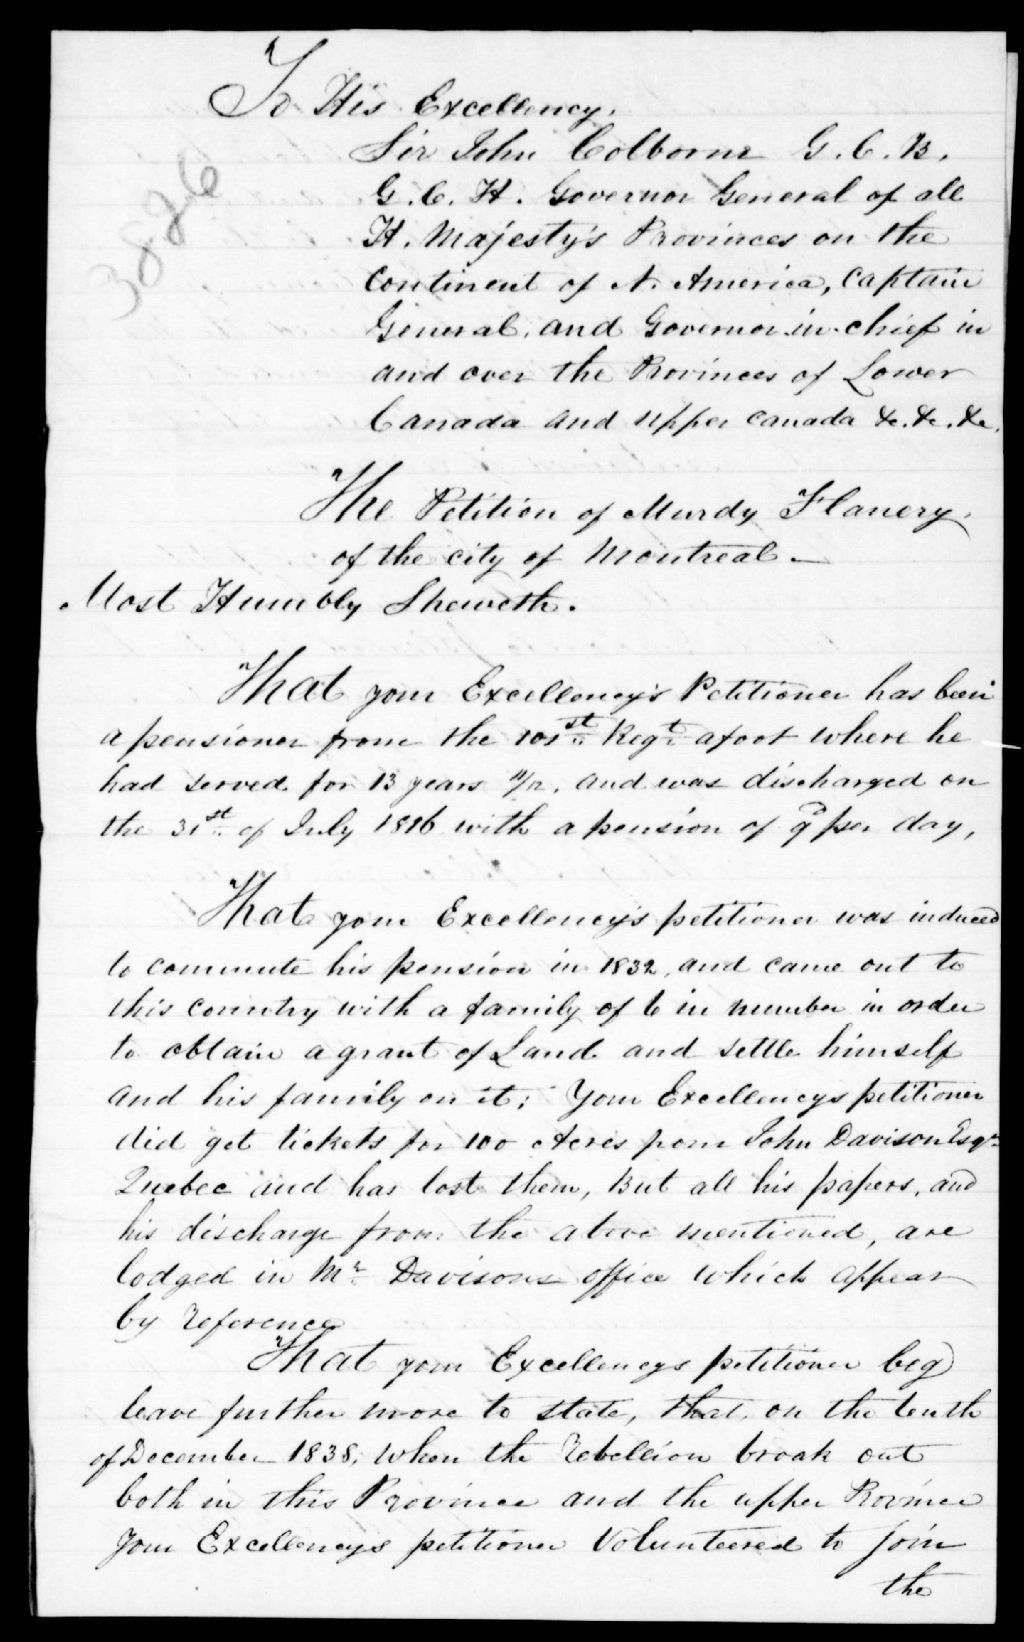 To His Excellency,
3826
Sir John Colborne G. C. B.
G. C. H. Governor General of all
H. Majesty's Provinces on the
Continent of N. America, Captain
General, and Governor in chief in
and over the Provinces of Lower
Canada and upper Canada &c. &c. &c.
The Petition of Murdy Flanery
of the city of Montreal —
Most Humbly Sheweth.
That your Excellency's Petitioner has been
a pensioner from the 101st Regt afoot where he
had served for 13 years 11/12, and was discharged on
the 31st of July 1816 with a pension of 9d per day,
That your Excellency's petitioner was induced
to commute his pension in 1832, and came out to
this country with a family of 6 in number in order
to obtain a grant of Land and settle himself
and his family on it; Your Excellencys petitioner
did get tickets for 100 Acres from John Davison Esqr
Quebec and has lost them, But all his papers, and
his discharge from the above mentioned, are
lodged in Mr Davisons office which appear
by reference
That your Excellencys petitioner beg
leave further more to state, that, on the tenth
of December 1838, when the Rebellion broak out
both in this Province and the upper Province
your Excellencys petitioner Volunteered to join
the